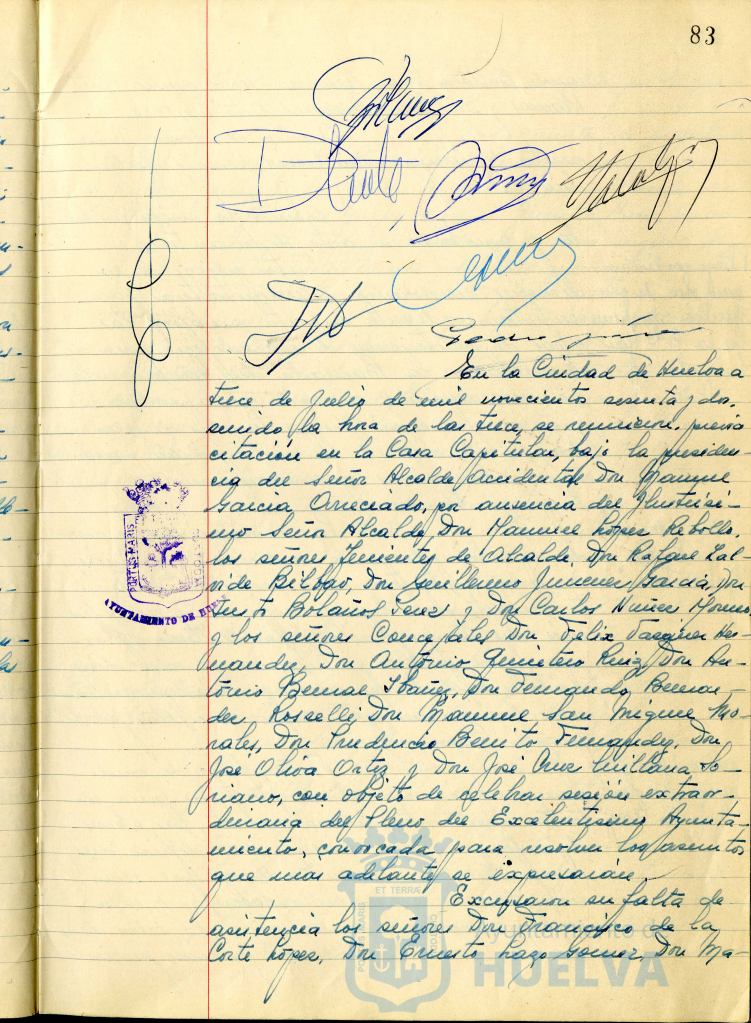 83
En la Ciudad de Huelva a
trece de Julio de mil novecientos sesenta y dos,
siendo la hora de las trece, se reunieron, previa
citación en la Casa Capitular, bajo la presiden-
cia del Señor Alcalde Accidental Don Manuel
Garcia Orreciado, por ausencia del Ilustrisi-
mo Señor Alcalde, Don Manuel López Rebollo,
los señores Tenientes de Alcalde, Don Rafael Zal-
vide Bilbao, Don Guillermo Jimenez Garcia, Don
Bolaños y Don Carlos Nuñez Moreno,
y los señores Concejales Don Felix Her-
nandez, Don Antonio Quintero Ruiz, Don An-
tonio Bernal Ibañez, Don Fernando Bernan-
dez Don Manuel San Miguel Mo-
rales, Don Prudencio Benito Fernandez, Don
José Oliva Ortiz y Don José Cruz Millana So-
riano, con objeto de celebrar sesión extraor-
dinaria del Pleno del Excelentisimo Ayunta-
miento, convocada para resolver los asuntos
que mas adelante se expresarán.
Excusaron su falta de
asistencia los señores Don Francisco de la
Corte López, Don Ernesto Lazo Gomez, Don Ma-
PORTUS MARIS
AYUNTAMIENTO DE HUELVA
ET TERRAE
Ayuntamiento de
HUELVA